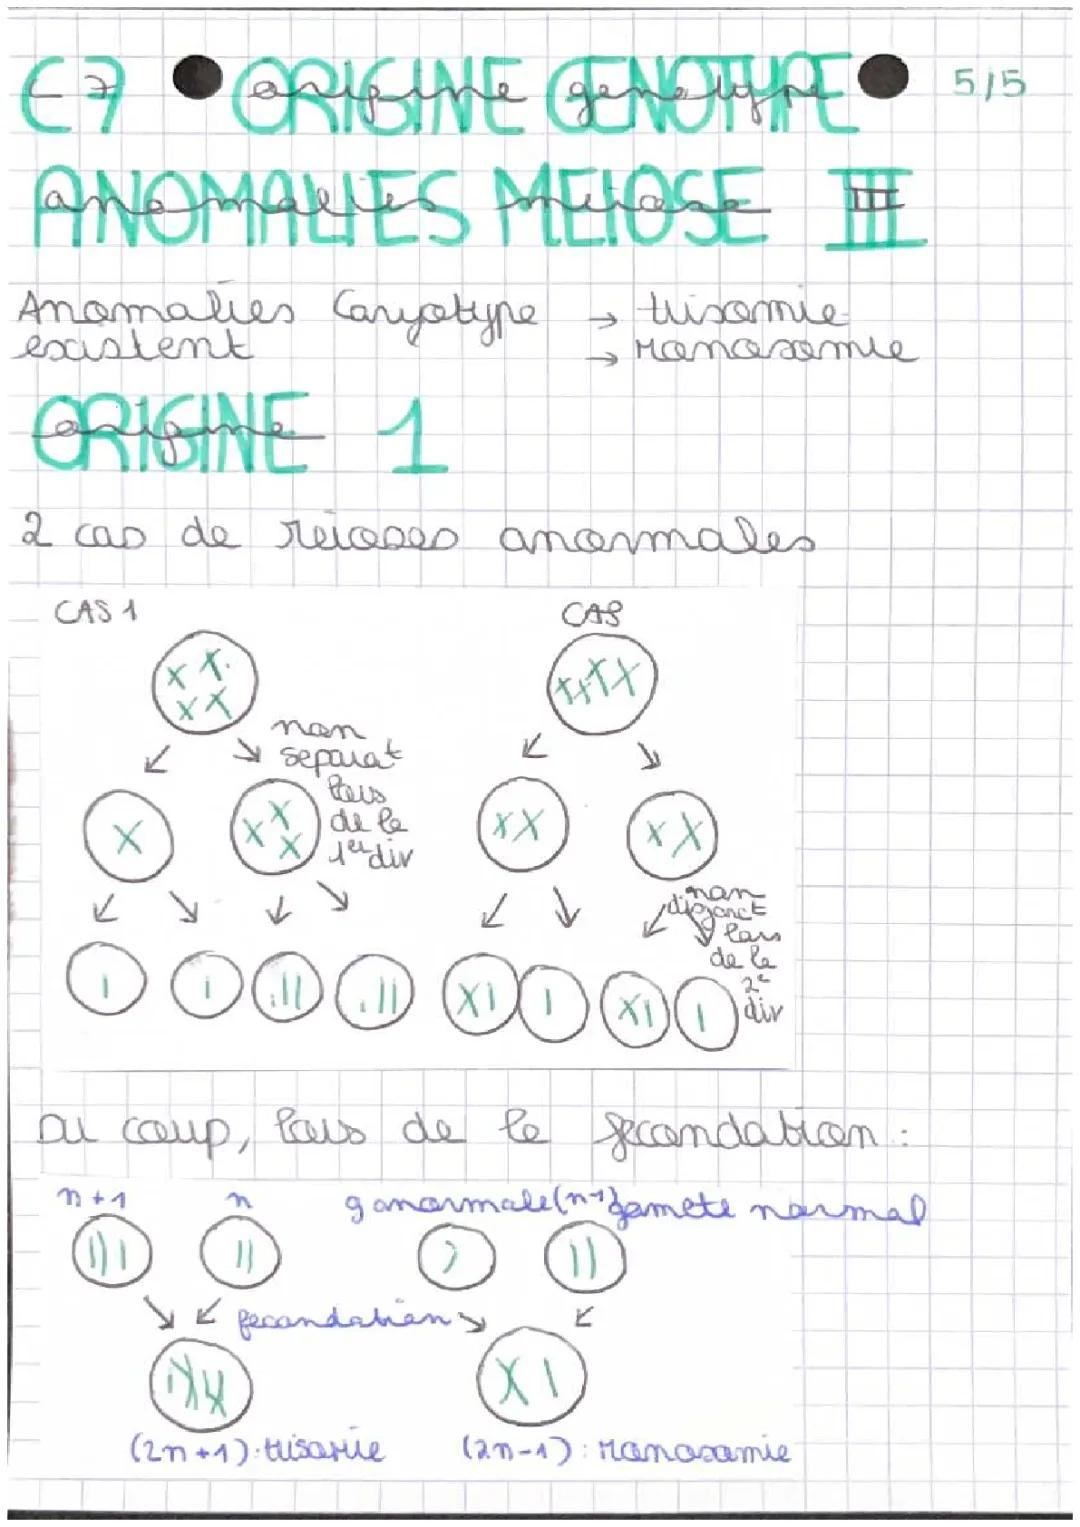 C7 ORIGINE GENOTYPE 5/5
origine génotype
ANOMALIES MEIOSE III
anomalies méiose III
Anomalies Caryotype → trisomie
existent → Monosomie
ORIGINE 1
origine
2 cas de Meioses anormales
CAS 1
CAS
non
separat
lors
de la
1er div
non
disjonct
lors
de la
2e
div
Du coup, lors de la fecondation :
n+1 n g anormale (n-1) gamete normal
fecondation
(2n+1): trisomie (2n-1): Monosomie